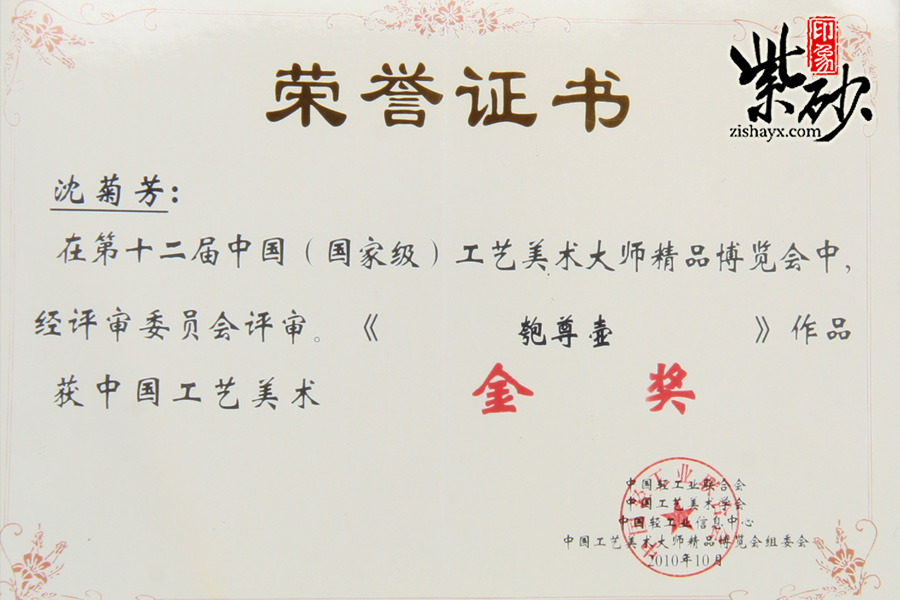 印象
紫砂
zishayx.com
荣誉证书
沈菊芳：
在第十二届中国（国家级）工艺美术大师精品博览会中，
经评审委员会评审。《匏尊壶》作品
获中国工艺美术 金奖
中国轻工业联合会
中国工艺美术学会
中国轻工业信息中心
中国工艺美术大师精品博览会组委会
2010年10月